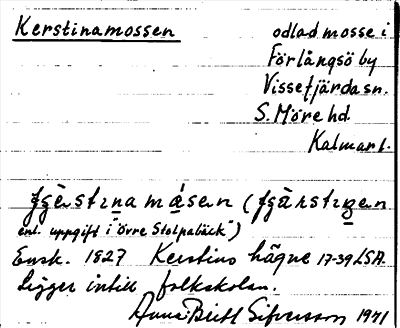 Kerstinamossen
odlad mosse i
Förlångsö by
Vissefjärda sn.
S. Möre hd.
Kalmar l.
enl. uppgift i "Övre Stolpabäck")
Ensk. 1827 Kerstins hägne 17-39 LSA.
Ligger intill folkskolan.
Anna-Britt Sifversson 1971